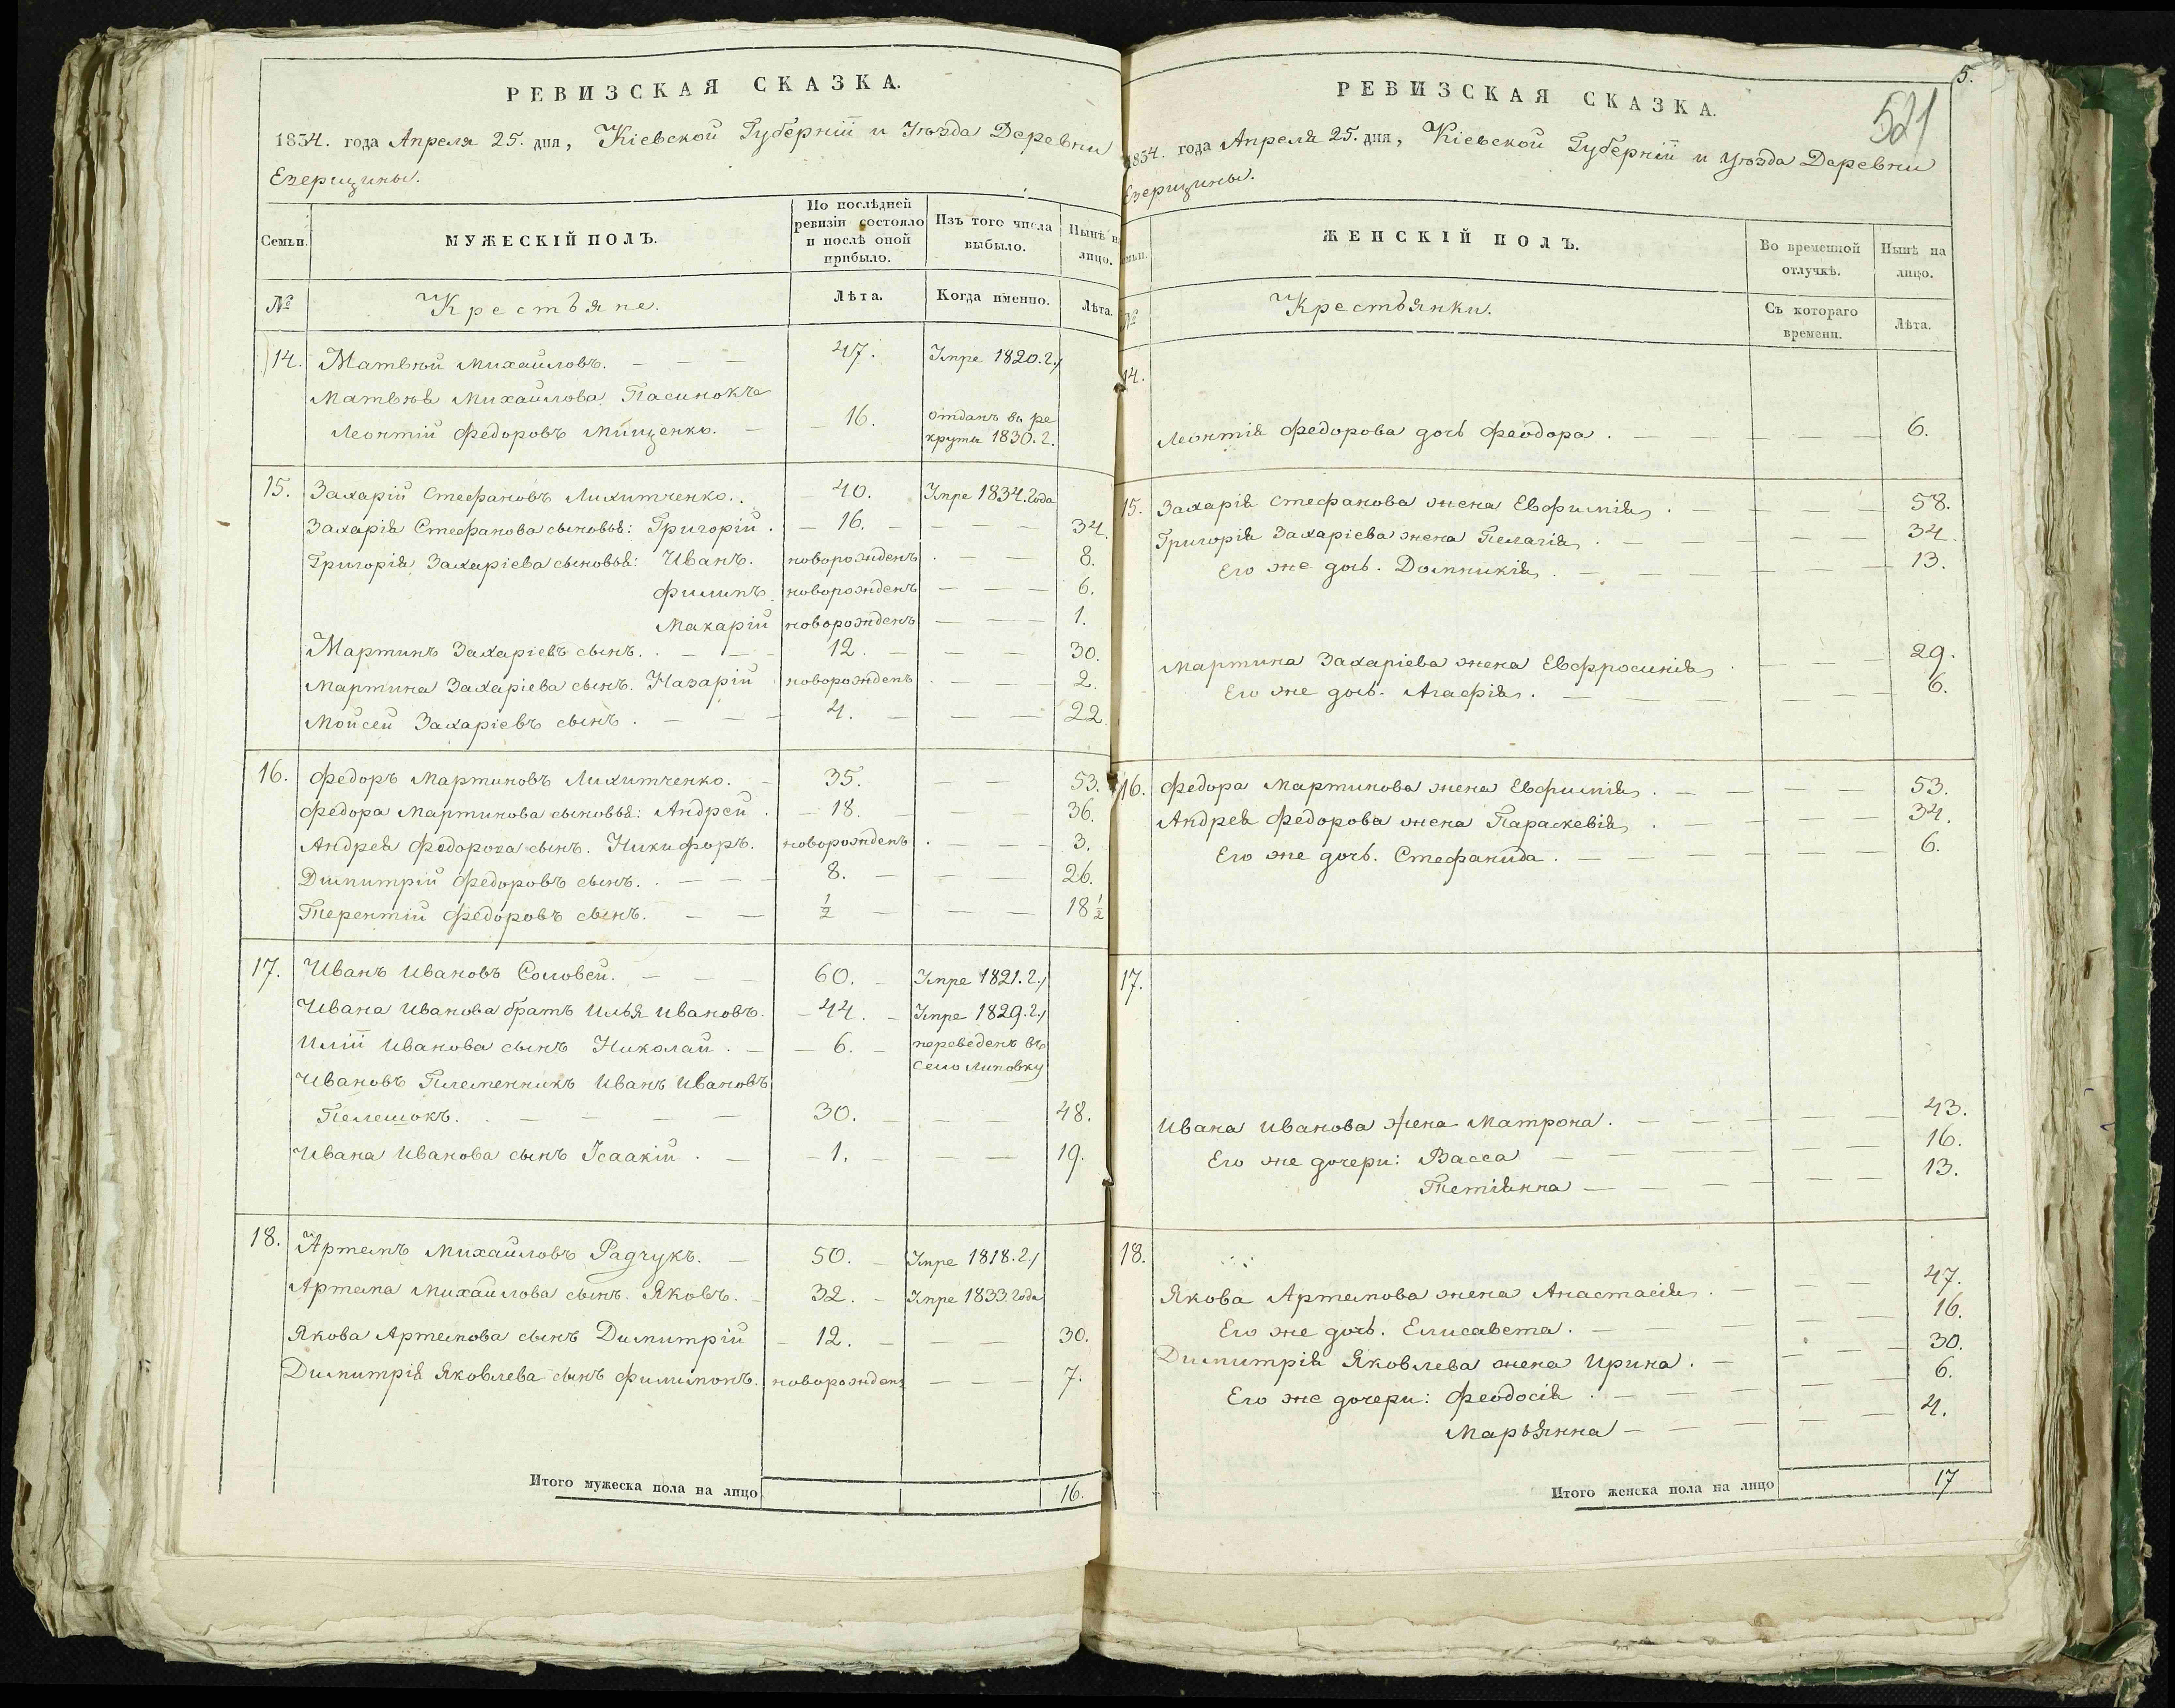 РЕВИЗСКАЯ СКАЗКА.
1834. года Апреля 25. дня, Кіевской Губерніи и Уѣзда Деревни
Езерищины.
Семьи. МУЖЕСКІЙ ПОЛЪ. По послѣдней ревизіи состояло и послѣ оной прибыло. Изъ того числа выбыло. Нынѣ на лицо.
№ Крестьяне. Лѣта. Когда именно. Лѣта.
14. Матвѣй Михайловъ. — — — 47. Умре 1820. г.
Матвѣя Михайлова Пасинокъ
Леонтій Федоровъ Мищенко. — 16. отданъ въ рекруты 1830. г.
15. Захарій Стефановъ Лихитченко. 40. Умре 1834. года
Захарія Стефанова сыновья: Григорій. 16. 34.
Григорія Захаріева сыновья: Иванъ. новорожденъ 8.
Филипъ новорожденъ 6.
Макарій новорожденъ 1.
Мартинъ Захаріевъ сынъ. 12. 30.
Мартина Захаріева сынъ. Назарій новорожденъ 2.
Мойсей Захаріевъ сынъ. 4. 22.
16. Федоръ Мартиновъ Лихитченко. 35. 53.
Федора Мартинова сыновья: Андрей. 18. 36.
Андрея Федорова сынъ. Никифоръ. новорожденъ 3.
Димитрій Федоровъ сынъ. 8. 26.
Терентій Федоровъ сынъ. ½ 18 ½
17. Иванъ Ивановъ Соловей. 60. Умре 1821. г.
Ивана Иванова братъ Илья Ивановъ. 44. Умре 1829. г.
Иліи Иванова сынъ Николай. 6. переведенъ въ село Липовку
Ивановъ Племенникъ Иванъ Ивановъ
Пелешокъ. 30. 48.
Ивана Иванова сынъ Ісаакій. 1. 19.
18. Артемъ Михайловъ Радчукъ. 50. Умре 1818. г.
Артема Михайлова сынъ. Яковъ. 32. Умре 1833. года
Якова Артемова сынъ Димитрій 12. 30.
Димитрія Яковлева сынъ Филимонъ. новорожденъ 7.
Итого мужеска пола на лицо 16.
5.
521
РЕВИЗСКАЯ СКАЗКА.
1834. года Апреля 25. дня, Кіевской Губерніи и Уѣзда Деревни
Езерищины.
Семьи. ЖЕНСКІЙ ПОЛЪ. Во временной отлучкѣ. Нынѣ на лицо.
№ Крестьянки. Съ котораго времени. Лѣта.
14.
Леонтія Федорова дочь Феодора. 6.
15. Захарія Стефанова жена Евфимія. 58.
Григорія Захаріева жена Пелагія. 34.
Его же дочь. Домникія. 13.
Мартина Захаріева жена Евфросинія. 29.
Его же дочь. Агафія. 6.
16. Федора Мартинова жена Евфимія. 53.
Андрея Федорова жена Параскевія. 34.
Его же дочь. Стефанида. 6.
17.
Ивана Иванова жена Матрона. 43.
Его же дочери: Васса 16.
Тетіянна 13.
18.
Якова Артемова жена Анастасія. 47.
Его же дочь. Елисавета. 16.
Димитрія Яковлева жена Ирина. 30.
Его же дочери: Феодосія. 6.
Марьянна 4.
Итого женска пола на лицо 17